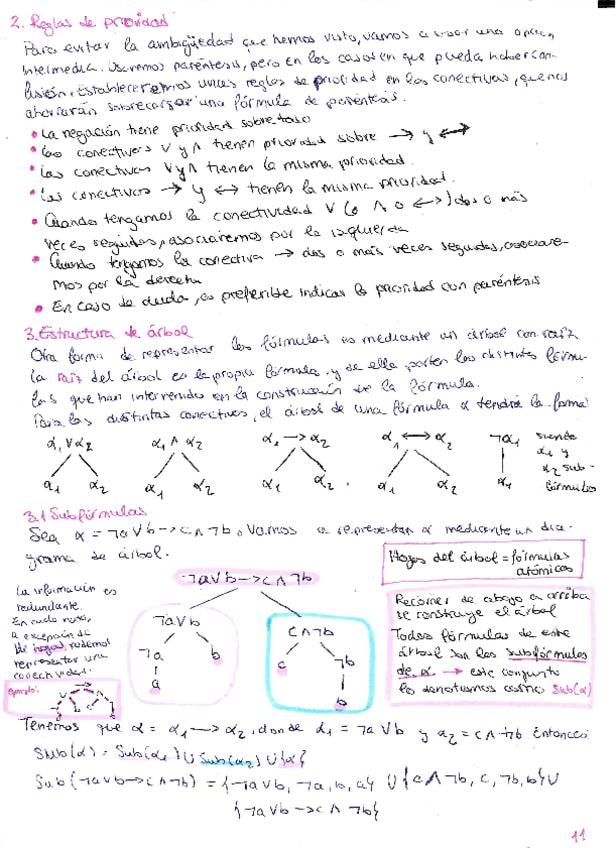 2. Reglas de prioridad
Para evitar la ambigüedad que hemos visto, vamos a usar una opción
intermedia. Usaremos paréntesis, pero en los casos en que pueda haber con-
fusión. Estableceremos unas reglas de prioridad en las conectivas, que nos
ahorrarán sobrecargar una fórmula de paréntesis.
• La negación tiene prioridad sobre todo
• Las conectivas ∨ y ∧ tienen prioridad sobre → y ↔
• Las conectivas ∨ y ∧ tienen la misma prioridad.
• Las conectivas → y ↔ tienen la misma prioridad.
• Cuando tengamos la conectividad ∨ (o ∧ o ↔) dos o más
veces seguidas, asociaremos por la izquierda
• Cuando tengamos la conectiva → dos o más veces seguidas, asociare-
mos por la derecha
• En caso de duda, es preferible indicar la prioridad con paréntesis
3. Estructura de árbol
Otra forma de representar las fórmulas es mediante un árbol con raíz
La raíz del árbol es la propia fórmula, y de ella parten las distintas fórmu-
las que han intervenido en la construcción de la fórmula.
Para las distintas conectivas, el árbol de una fórmula α tendrá la forma
α₁ ∨ α₂ α₁ ∧ α₂ α₁ → α₂ α₁ ↔ α₂ ¬α₁ siendo
α₁ y
α₁ α₂ α₁ α₂ α₁ α₂ α₁ α₂ α₁ α₂ sub-
fórmulas
3.1 Subfórmulas
Sea α = ¬a∨b→c∧¬b. Vamos a representar α mediante un dia-
grama de árbol.
Hojas del árbol = fórmulas
atómicas
¬a∨b→c∧¬b
La información es
redundante.
En cada nodo,
a excepción de
las hojas, podemos
representar una
conectividad.
ejemplo:
∨ → ∧
¬a∨b
¬a b
a
c∧¬b
c ¬b
b
Recorrer de abajo a arriba
se construye el árbol
Todas fórmulas de este
árbol son las subfórmulas
de α → este conjunto
lo denotamos como Sub(α)
Tenemos que α = α₁ → α₂, donde α₁ = ¬a∨b y α₂ = c∧¬b Entonces:
Sub(α) = Sub(α₁) ∪ Sub(α₂) ∪ {α}
Sub(¬a∨b→c∧¬b) = {¬a∨b, ¬a, b, a} ∪ {c∧¬b, c, ¬b, b} ∪
{¬a∨b→c∧¬b}
11